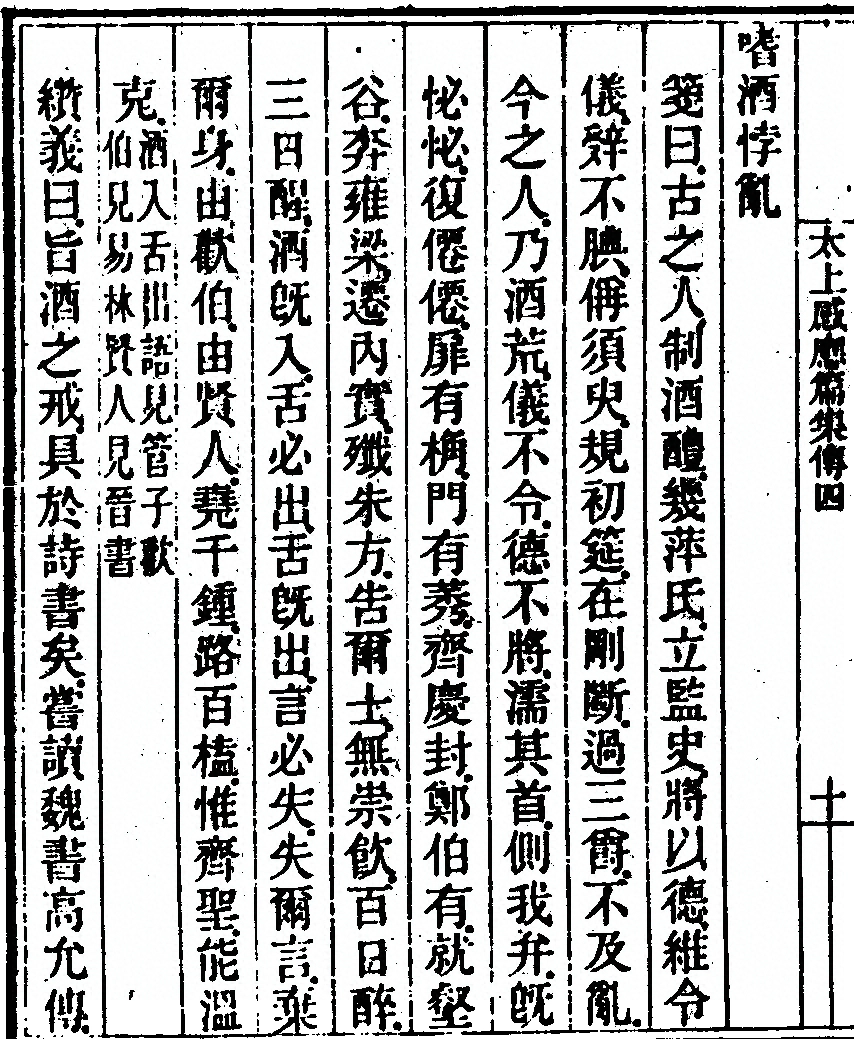 太上感應篇集傳四
十
嗜酒悖亂
箋曰古之人制酒醴幾萍氏立監史將以德維令
儀辤不腆俾須臾規初筵在剛斷過三爵不及亂
今之人乃酒荒儀不令德不將濡其首側我弁旣
怭怭復僊僊扉有桷門有莠齊慶封鄭伯有就壑
谷奔雍梁遷內實殲朱方告爾士無崇飮百日醉
三四醒酒旣入舌必出舌旣出言必失失爾言棄
爾身由歡伯由賢人堯千鍾路百榼惟齊聖能溫
克酒入舌出語見管子歡
伯見易林賢人見晉書
纘義曰旨酒之戒具於詩書矣嘗讀魏書高允傳